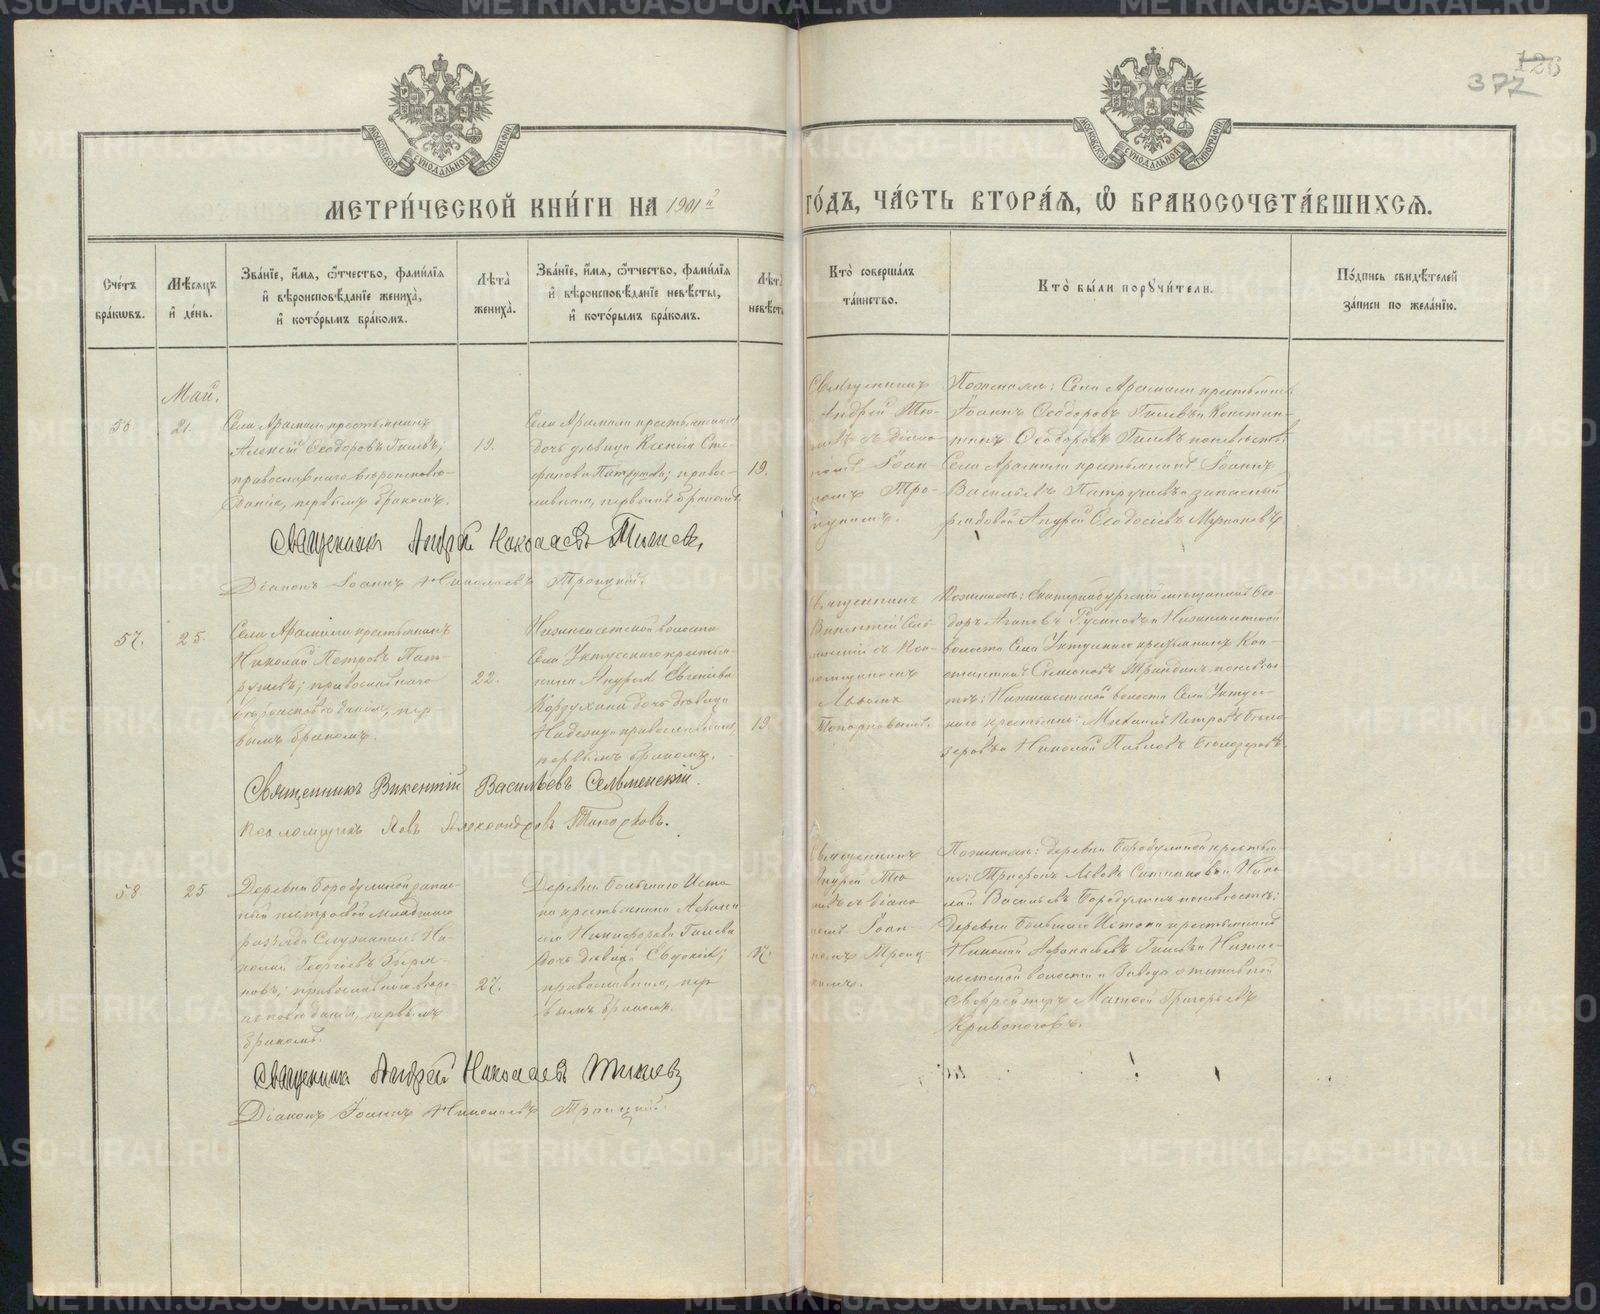 126
377
МОСКОВСКОЙ СУНОДАЛЬНОЙ ТИПОГРАФІИ
МОСКОВСКОЙ СУНОДАЛЬНОЙ ТИПОГРАФІИ
МЕТРИ́ЧЕСКОЙ КНИ́ГИ НА 1901й
ГО́ДЪ, ЧА́СТЬ ВТОРА́Ѧ, Ѡ҆ БРАКОСОЧЕТА́ВШИХСѦ.
Сче́тъ бра́кѡвъ.
Мѣ́сѧцъ и҆ де́нь.
Зва́нїе, и҆́мѧ, ѻ҆́тчество, фами́лїѧ и҆ вѣроисповѣ́данїе жениха̀, и҆ кото́рымъ бра́комъ.
Лѣ́та жениха̀.
Зва́нїе, и҆́мѧ, ѻ҆́тчество, фами́лїѧ и҆ вѣроисповѣ́данїе невѣ́сты, и҆ кото́рымъ бра́комъ.
Лѣ́та невѣ́ст
Кто̀ соверша́лъ та́инство.
Кто̀ бы́ли порꙋчи́тели.
По́дпись свидѣ́телей за́писи по жела́нїю.
Май.
21.
Села Арамили крестьянинъ
Алексій Ѳеодоровъ Гилевъ,
православнаго вѣроисповѣ-
данія, первымъ бракомъ.
19.
Села Арамили крестьянина
дочь девица Ксенія Сте-
фанова Патрушева; правос-
лавная, первымъ бракомъ.
19.
Священникъ
Андрей
діако-
Іоан-
номъ Тро-
Поженихѣ: Села Арамили крестьяне
Іоаннъ Ѳеодоровъ Гилевъ и Констан-
тинъ Ѳеодоровъ Гилевъ поневѣстѣ:
Села Арамили крестьянинъ Іоаннъ
Васильевъ Патрушевъ и запасный
рядовой Андрей Ѳеодосіевъ
Священникъ Андрей Николаевъ
Діаконъ Іоаннъ Николаевъ Троицкій.
57.
25.
Села Арамили крестьянинъ
Николай Петровъ Пат-
рушевъ; православнаго
вѣроисповѣданія, пер-
вымъ бракомъ.
22.
Нижнеисетской волости
Села Уктусскаго крестья-
нина Андрея Евгеніева
Корзухина дочь девица
Надежда православная,
первымъ бракомъ.
19.
Священникъ
Викентій Сель-
менскій съ Пса-
ломщикомъ
Львомъ
Топорковымъ.
Поженихѣ: Екатеринбургскій мещанинъ Ѳео-
доръ Агаповъ Русиновъ и Нижнеисетской
волости Села Уктусскаго крестьянинъ Кон-
стантинъ Симеоновъ поневѣс-
тѣ: Нижнеисетской волости Села Уктус-
скаго крестьяне: Михаилъ Петровъ Бело-
зеровъ и Николай Павловъ Белозеровъ.
Священникъ Викентій Васильевъ Сельменскій.
Псаломщикъ Левъ Александровъ Топорковъ.
58.
25.
Деревни Бородулиной запас-
ный младшаго
разряда
Георгіевъ
православнаго вѣро-
исповѣданія, первымъ
бракомъ.
27.
Деревни Большаго Исто-
ка крестьянина Афана-
сія Никифорова Гилева
дочь девица Евдокія;
православная, пер-
вымъ бракомъ.
17.
Священникъ
Андрей
съ діако-
номъ Іоан-
номъ Троиц-
кимъ.
Поженихѣ: деревни Бородулиной крестья-
не: Трифонъ Львовъ Ситниковъ и Нико-
лай Васильевъ Бородулинъ поневѣстѣ:
Деревни Большаго Истока крестьянинъ
Николай Афанасьевъ Гилевъ и Нижне-
исетской волости и Завода отставной
Ефрейторъ Матвей Григорьевъ
Кривоноговъ.
Священникъ Андрей Николаевъ
Діаконъ Іоаннъ Николаевъ Троицкій.
METRIKI.GASO-URAL.RU